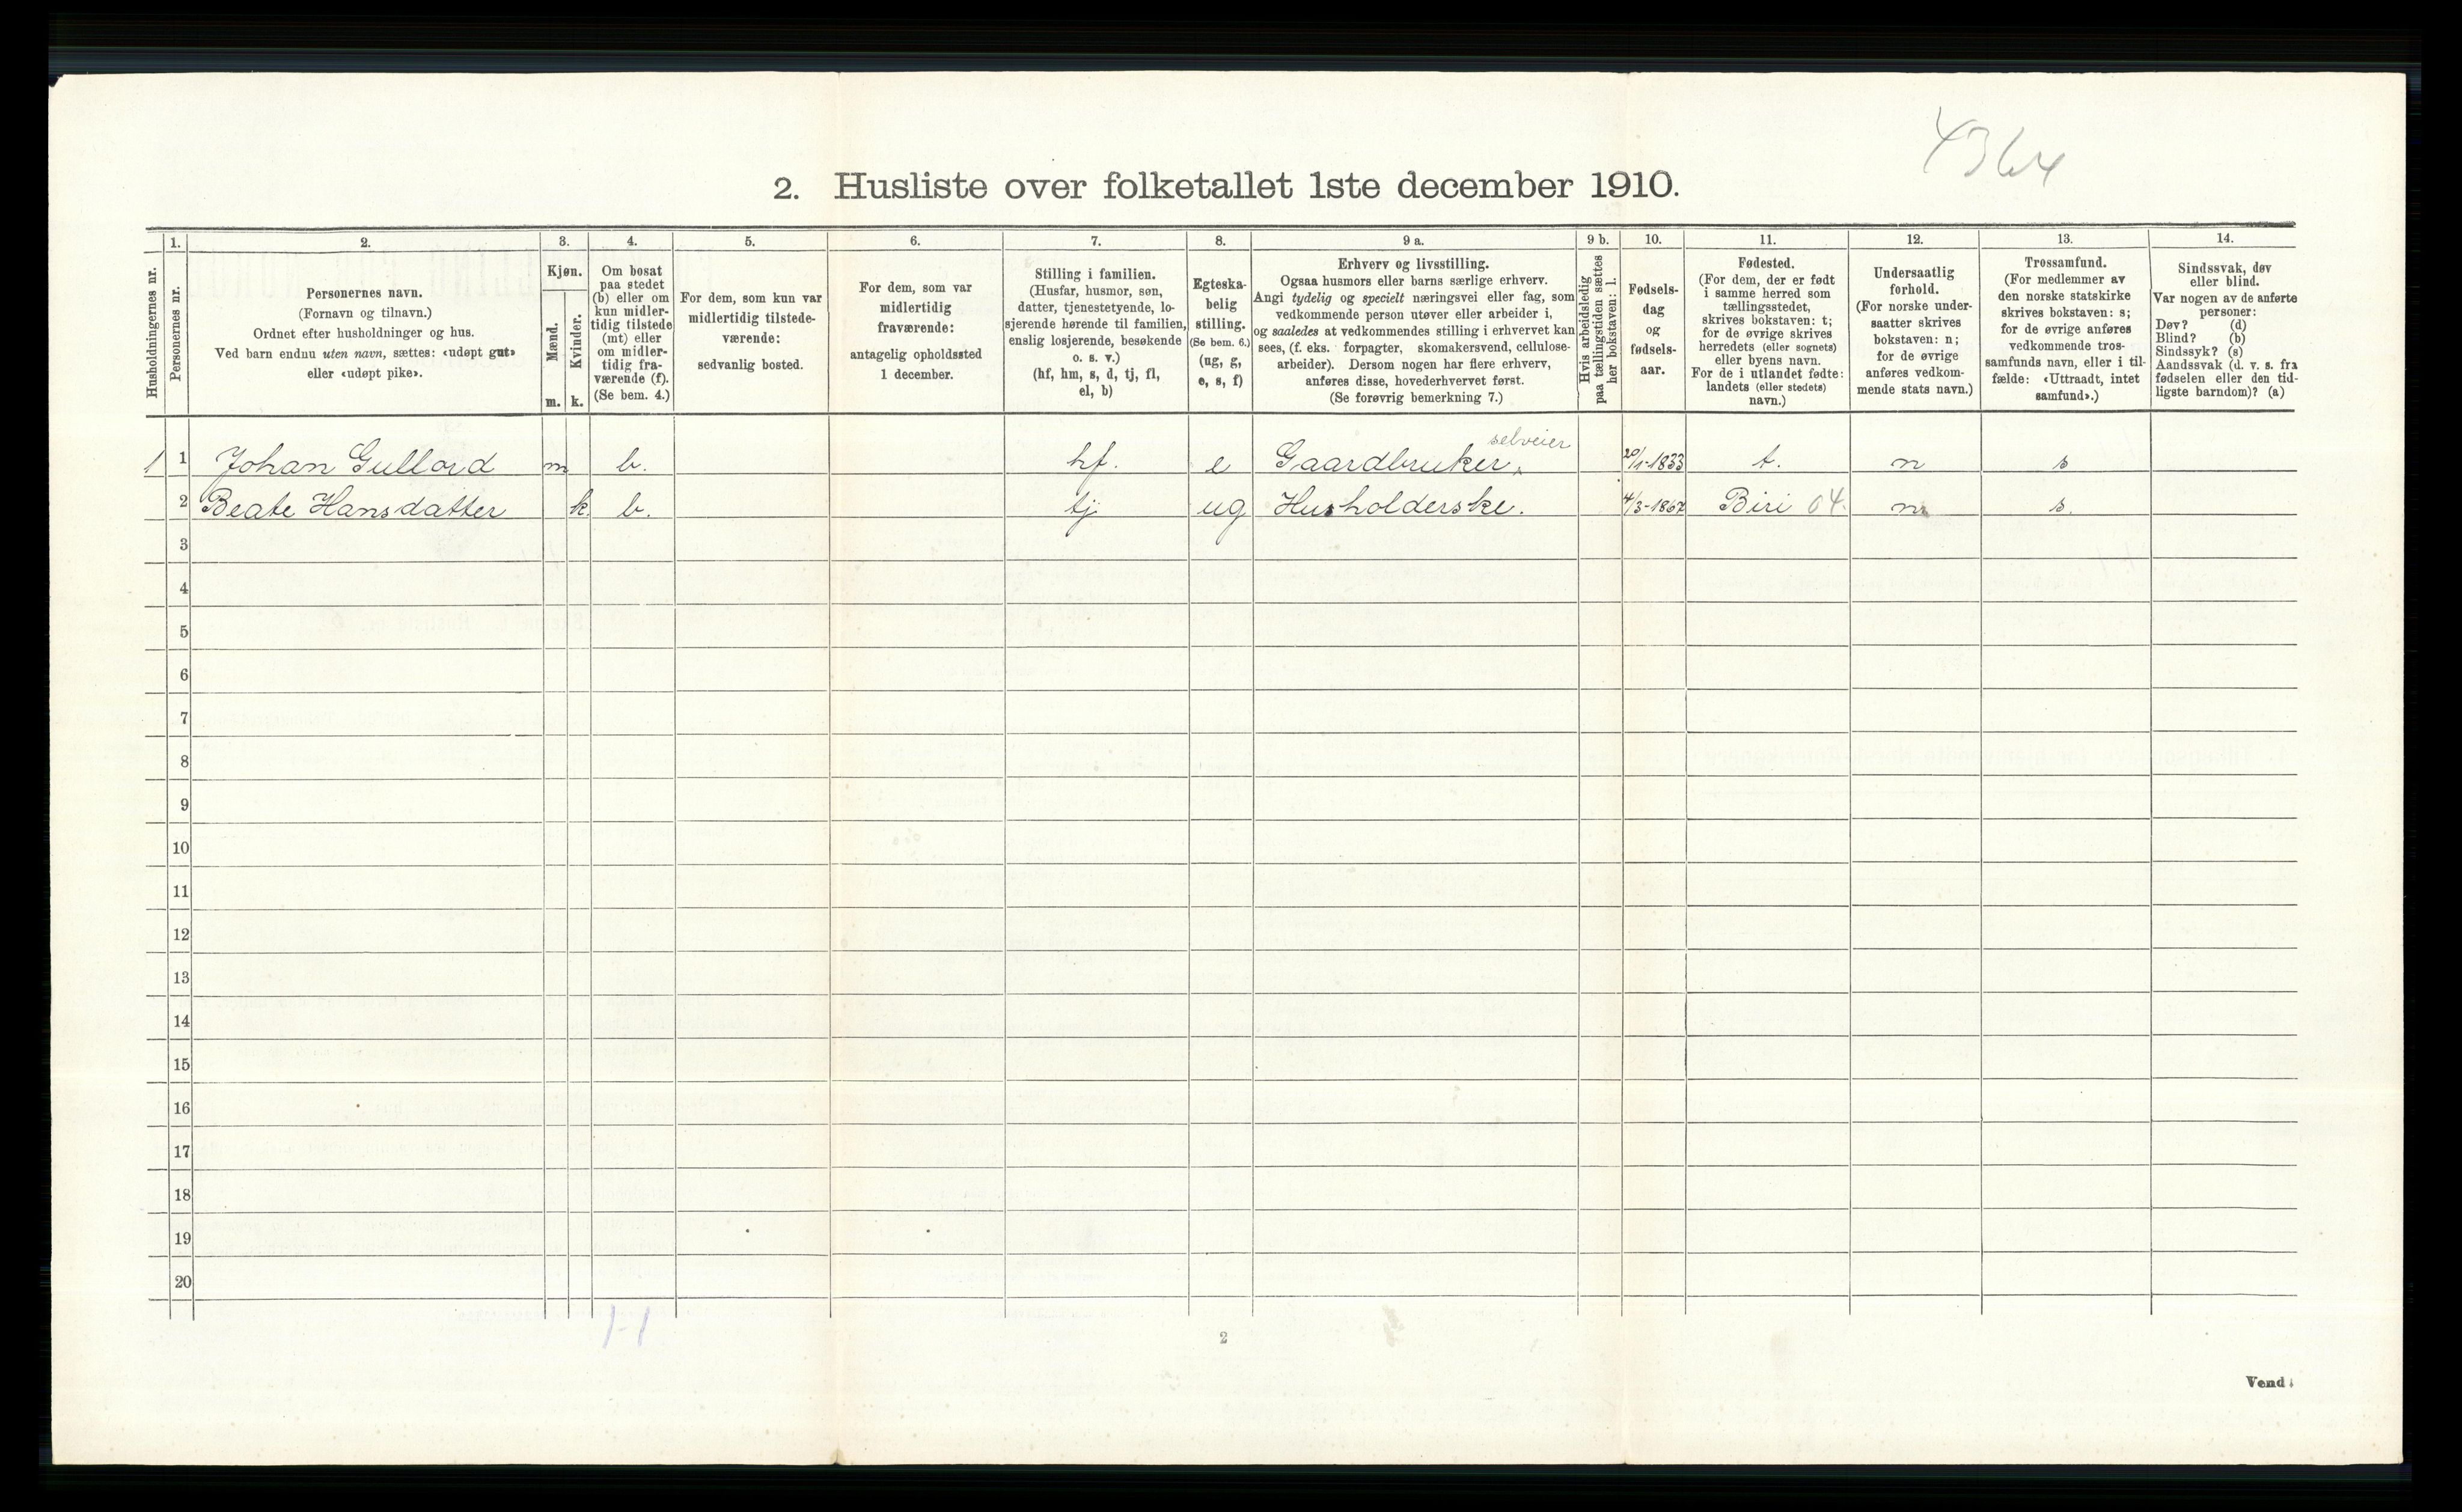 4364
2. Husliste over folketallet 1ste december 1910.
Husholdningernes nr.
1.
Personernes nr.
2.
Personernes navn.
(Fornavn og tilnavn.)
Ordnet efter husholdninger og hus.
Ved barn endnu uten navn, sættes: «udøpt gut»
eller «udøpt pike».
3.
Kjøn.
Mænd.
Kvinder.
m. k.
4.
Om bosat
paa stedet
(b) eller om
kun midler-
tidig tilstede
(mt) eller
om midler-
tidig fra-
værende (f).
(Se bem. 4.)
5.
For dem, som kun var
midlertidig tilstede-
værende:
sedvanlig bosted.
6.
For dem, som var
midlertidig
fraværende:
antagelig opholdssted
1 december.
7.
Stilling i familien.
(Husfar, husmor, søn,
datter, tjenestetyende, lo-
sjerende hørende til familien,
enslig losjerende, besøkende
o. s. v.)
(hf, hm, s, d, tj, fl,
el, b)
8.
Egteska-
belig
stilling.
(Se bem. 6.)
(ug, g,
e, s, f)
9 a.
Erhverv og livsstilling.
Ogsaa husmors eller barns særlige erhverv.
Angi tydelig og specielt næringsvei eller fag, som
vedkommende person utøver eller arbeider i,
og saaledes at vedkommendes stilling i erhvervet kan
sees, (f. eks. forpagter, skomakersvend, cellulose-
arbeider). Dersom nogen har flere erhverv,
anføres disse, hovederhvervet først.
(Se forøvrig bemerkning 7.)
9 b.
Hvis arbeidsledig
paa tællingstiden sættes
her bokstaven: l.
10.
Fødsels-
dag
og
fødsels-
aar.
11.
Fødested.
(For dem, der er født
i samme herred som
tællingsstedet,
skrives bokstaven: t;
for de øvrige skrives
herredets (eller sognets)
eller byens navn.
For de i utlandet fødte:
landets (eller stedets)
navn.)
12.
Undersaatlig
forhold.
(For norske under-
saatter skrives
bokstaven: n;
for de øvrige
anføres vedkom-
mende stats navn.)
13.
Trossamfund.
(For medlemmer av
den norske statskirke
skrives bokstaven: s;
for de øvrige anføres
vedkommende tros-
samfunds navn, eller i til-
fælde: «Uttraadt, intet
samfund».)
14.
Sindssvak, døv
eller blind.
Var nogen av de anførte
personer:
Døv? (d)
Blind? (b)
Sindssyk? (s)
Aandssvak (d. v. s. fra
fødselen eller den tid-
ligste barndom)? (a)
selveier
1 1 Johan Gullord m b. hf. e Gaardbruker 20/1-1833 t. n s
2 Beate Hansdatter k. b. tj ug Husholderske. 4/3-1867 Biri 04. n s.
3
4
5
6
7
8
9
10
11
12
13
14
15
16
17
18
19
20
1-1
2
Vend!